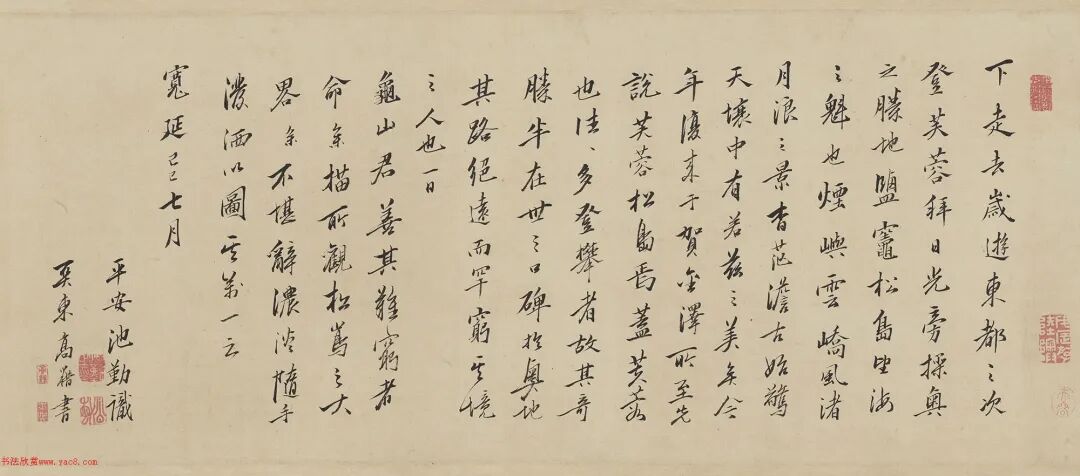 下走去歲遊東都之次
登芙蓉拜日光旁探奥
之勝地鹽竈松島海
之魁也煙嶼雲嶠風渚
月浪之景杳茫澹古始驚
天壤中有若茲之美矣今
年復来于賀金澤所至先
說芙蓉松島焉蓋芙蓉
也往〻多登攀者故其奇
勝半在世之口碑於奥地
其路絕遠而罕窮其境
之人也一日
龜山君善其難窮者
命余描所觀松嶌之大
畧余不堪辭濃淡隨手
潑洒以圖其萬一云
寬延己巳七月
平安池勤識
奚東高書
书法欣赏www.yac8.com